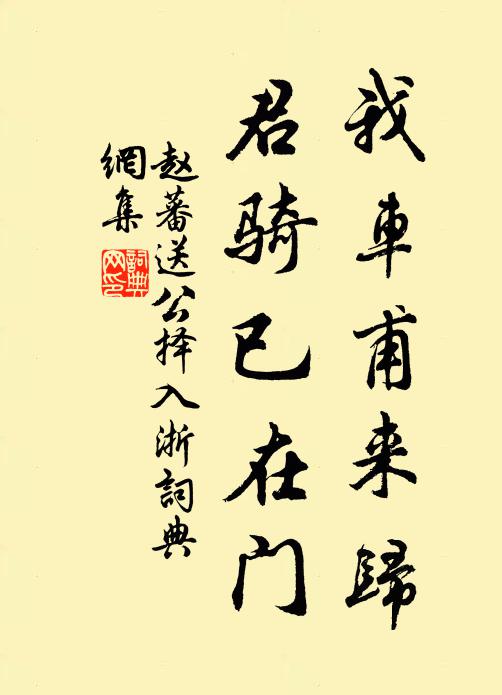 我車甫来歸
君骑已在门
赵蕃送公择入浙詞典
網集
詞典
网印